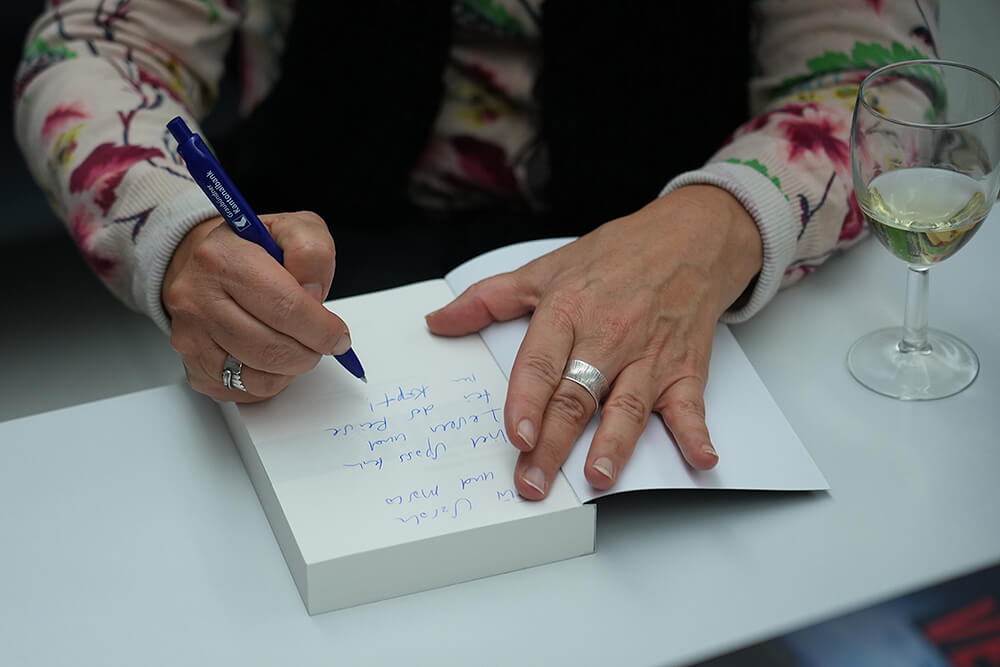 Graubündner
Kantonalbank
Für Sarah
und Marco
Spass beim
Lesen und
Reise
Kopf!